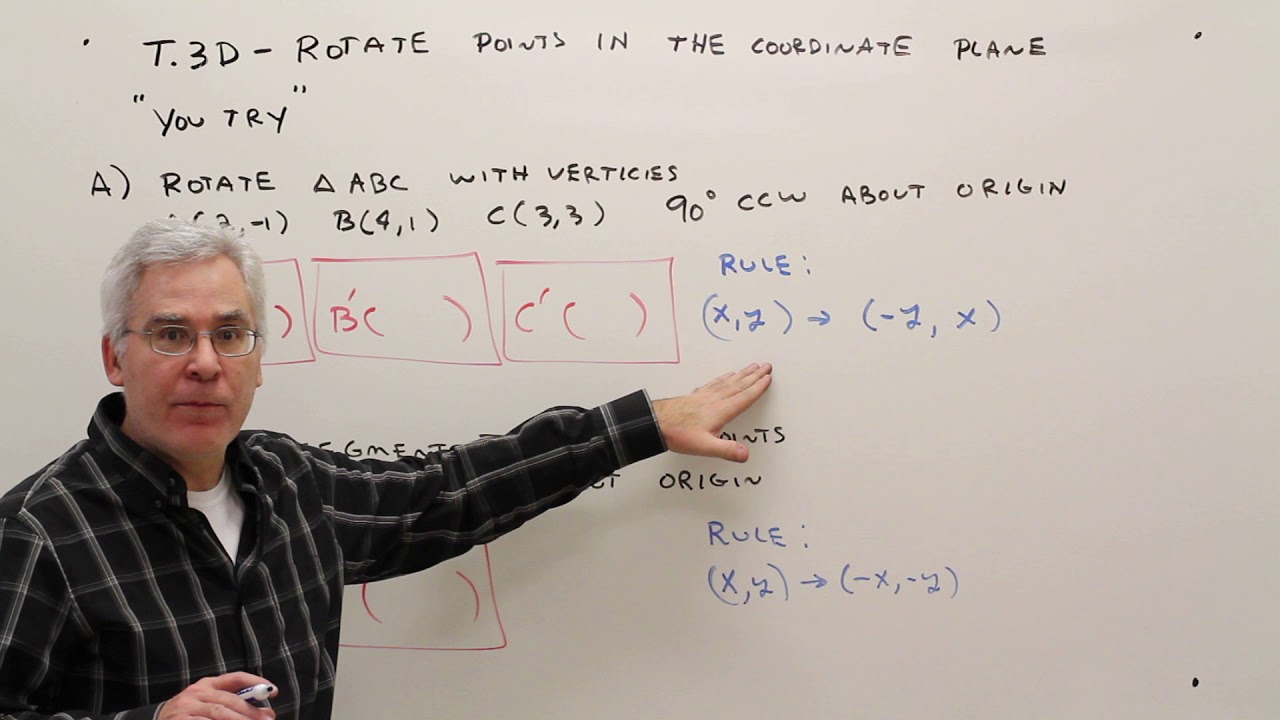 T.3D - ROTATE POINTS IN THE COORDINATE PLANE
"YOU TRY"
A) ROTATE △ABC WITH VERTICIES
(2,-1) B(4,1) C(3,3) 90° CCW ABOUT ORIGIN
) B'( ) C'( )
RULE:
(x,y) → (-y, x)
ORIGIN
RULE:
(x,y) → (-x,-y)
( )